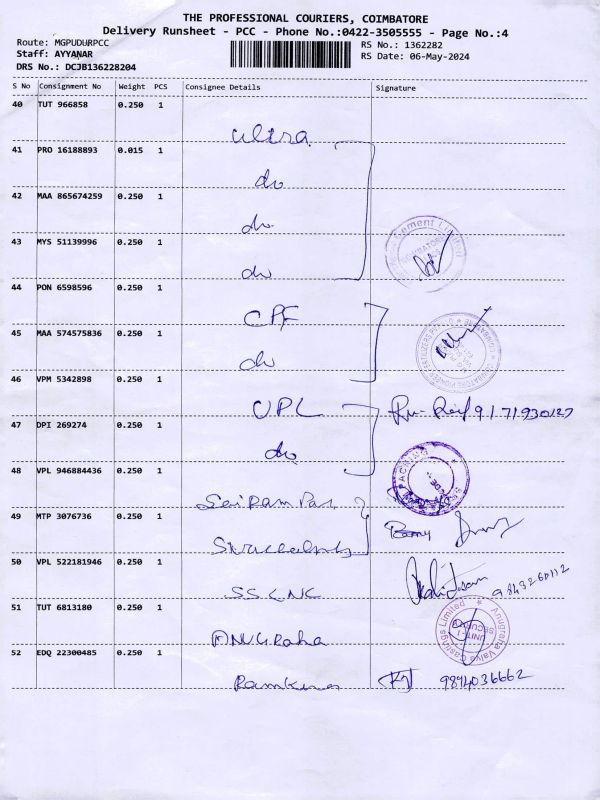 THE PROFESSIONAL COURIERS, COIMBATORE
Delivery Runsheet - PCC - Phone No.:0422-3505555 - Page No.:4
Route: MGPUDURPCC
RS No.: 1362282
Staff: AYYANAR
RS Date: 06-May-2024
DRS No.: DCJB136228204
S No Consignment No Weight PCS Consignee Details Signature
40 TUT 966858 0.250 1
ultra
41 PRO 16188893 0.015 1
do
42 MAA 865674259 0.250 1
do
43 MYS 51139996 0.250 1
do
Cement Limited
44 PON 6598596 0.250 1
CPF
45 MAA 574575836 0.250 1
do
46 VPM 5342898 0.250 1
UPL
47 DPI 269274 0.250 1
do
48 VPL 946884436 0.250 1
Sai Ram
49 MTP 3076736 0.250 1
50 VPL 522181946 0.250 1
SS CNC
9843260112
51 TUT 6813180 0.250 1
ANUGRaha
Anugraha Valve Castings Limited
UNIT-I
52 EDQ 22300485 0.250 1
Ramkumar
9894036662